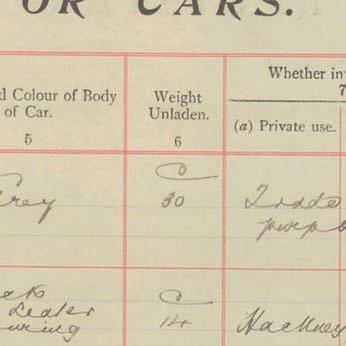 OR CARS.
d Colour of Body
of Car.
5
Weight
Unladen.
6
Whether in
7
(a) Private use.
Grey
C
30
Trade
purp
Dealer
C
14
Hackney